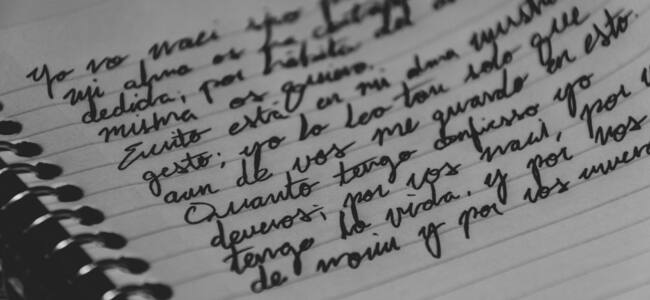 yo no naci sino
mi alma os ha
dedida; por hábito del
misma os quiero.
Escrito está en mi alma vuestro
gesto; yo lo leo tan solo que
aun de vos me guardo en esto.
Quanto tengo confieso yo
deveros; por vos naci, por
tengo la vida, y por vos
de morir y por vos muero